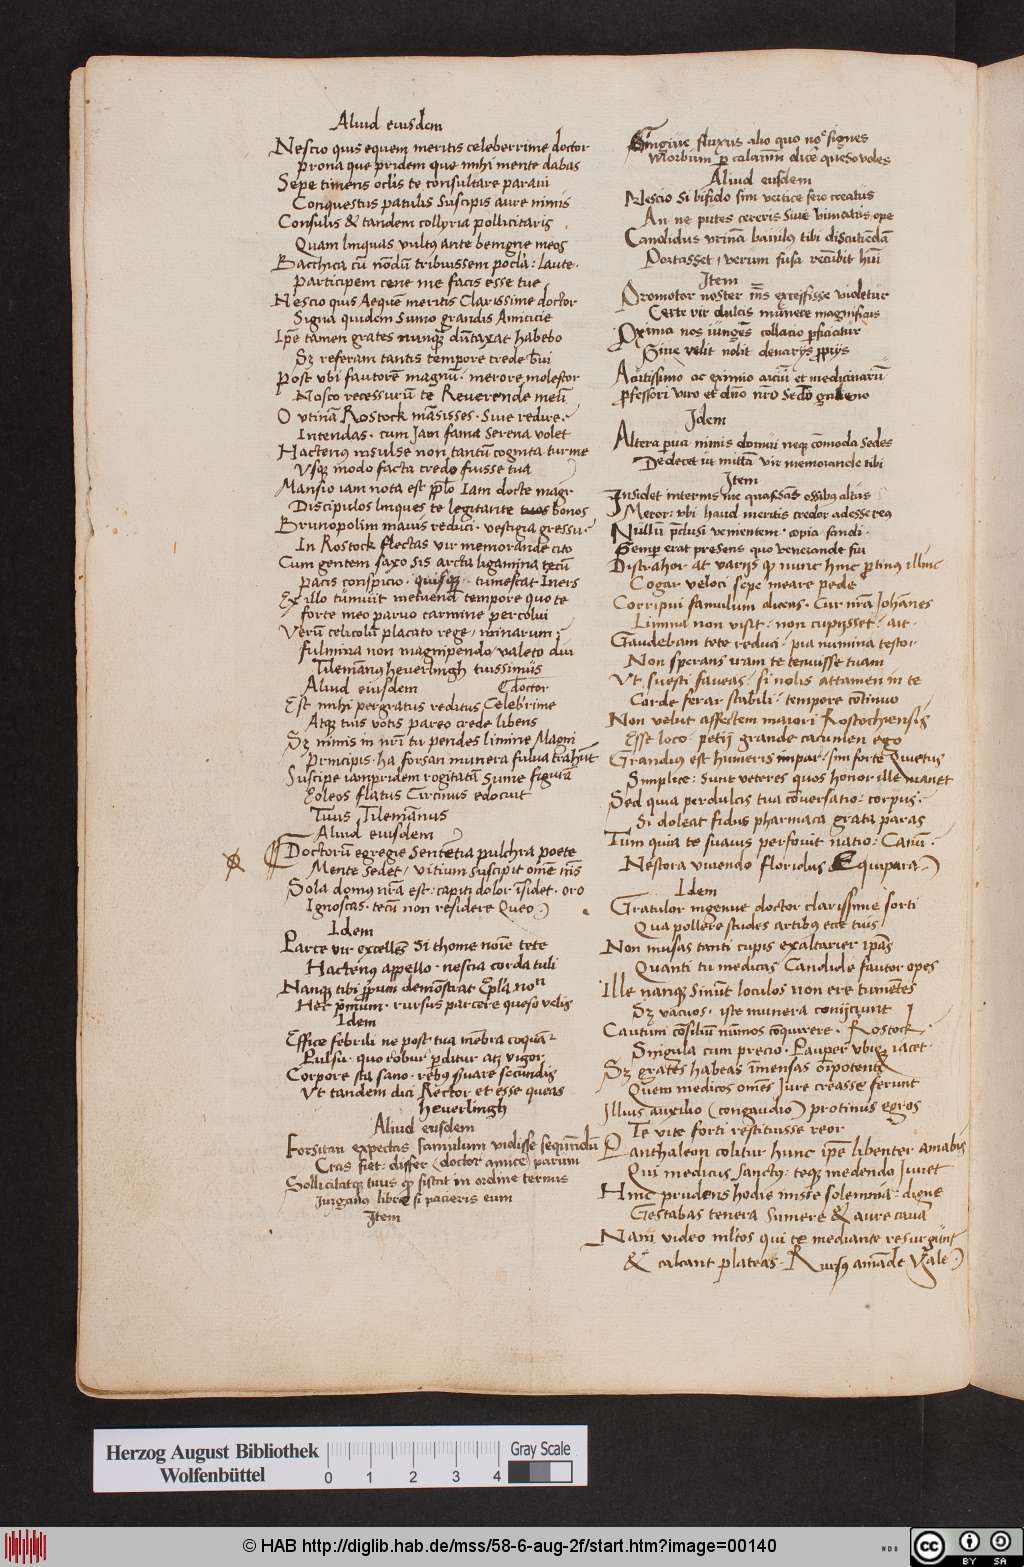 Aliud eiusdem
Nescio quis equem meritis celeberrime doctor
Prona que pridem que mihi mente dabas
Sepe timens oclis te consultare paraui
Conquestus patulis suscipis aure nimis
Consulis & tandem collyria pollicitaris
Quam linquas ante benigne meos
Bacchica cū nōdū tribuissem pocla: laute
participem cene me facis esse tue
Nescio quis Aequē meritis Clarissime doctor
Signa quidem sumo grandis Amicicie
Ipē tamen grates nunquā dūtaxat habebo
Sz referam tantis tempore crede tui
Post vbi fautorē magnū merore molestor
Nosco recessurū te Reuerende meū
O vtinā Rostock māsisses. Siue redire
Intendas. cum Jam fama Serena volet
Hactenus insulse non tantū cognita turme
Vsqz modo facta credo fuisse tua
Mansio iam nota est Iam docte magr
Discipulos linques te legitante bonos
Brunopolim mauis reduci. vestigia gressu
In Rostock flectas vir memorande cito
Cum gentem saxo sis arcta ligamina tecū
pacis conspicio. quisqz. tumescat Iners
Ex illo tūmuit metuend tempore quo te
forte meo paruo carmine percolui
Verū celicolā placato rege, minarum
fulmina non magnipendo, valeto diu
Tilemānus heuerlingh tuissimus
Aliud eiusdem doctor
Est mihi pergratus reditus Celebrime
Atqz tuis votis pareo crede libens
Sz nimis in nri tu pendes limine Magni
Principis. ha forsan munera fulua trahūt
Suscipe iampridem rogitatā Sume figurā
Eoleos flatus Circinus edocuit
Tuus Tilemānus
Aliud eiusdem
Doctorū egregie Sentētia pulchra poete
Mente Sedet, vitium Suscipit omē nris
Sola domus nra est: capiti dolor īsidet. oro
Ignoscas. tecū non residere Queo
Idem
Parce vir excellēs Si thome noīe tete
Hactenus appello. nescia corda tuli
Nanqz tibi ppriū demōstrat Epla nōn
Hec pmum. rursus parcere queso velis
Idem
Effice febrili ne post tua mēbra coquāt
Pulsu. quo robur pditur atqz vigor
Corpore sta sano. rebus suare secundis
Vt tandem dici Rector et esse queas
heuerlingh
Aliud eiusdem
Forsitan expectas famulum vidisse sequendū
Cras fiet: differ (doctor amice) parum
Sollicitatqz tuus qp sistit in ordine ternus
Jurganus libre si pacieris eum
Item
Gingiue fluxus alio quo nōe signes
Morbum p calamū dicē queso voles
Aliud eiusdem
Nescio Si bifido sim vertice sero creatus
An ne putes cereris Siue vincatus ope
Candidus vrinā baiulus tibi discutiēdā
Portasset, verum fusa recūbit hui
Item
Promotor noster ins excessisse videtur
Certe vir dulcis munere magnificus
Proxima nos iungēs collacio pficiatur
Siue velit nolit denarijs ppijs
Acutissimo ac eximio arciū et medicinarū
pfessori viro et dno nro Sedo galieno
Idem
Altera pua nimis domui neqz cōmoda Sedes
Dedecet ut mittā vir memorande tibi
Item
Insidet internis me quassās ossibus altus
Metor: vbi haud meritis credor adesse reus
Nullū pclusi venientem. copia fandi
Semp erat presens quo venerande fui
Distrahor at varijs qp nunc hinc ptinus illinc
Cogar veloci sepe meare pede
Corripui famulum dicens. Cur nrā Johānes
Limina non visit: non cupijsset: ait.
Gaudebam tete reduci: pia numina testor
Non sperans vram te tenuisse tuam
Vt suesti faueas: si nolis attamen in te
Corde ferar stabili: tempore cōtinuo
Non velut affectem maiori Rostochiensis
Esse loco: petij grande cacumen ego
Grandius est humeris impar: sim forte Quietus
Simplice: Sunt veteres quos honor ille manet
Sed quia perdulcis tua cōuersatio: corpus
Si doleat fidus pharmaca grata paras
Tum quia te suauis perfouit natio: Canū
Nestora viuendo floridus Equipara
Idem
Gratulor ingenue doctor clarissime sorti
Qua pollere studes artibus ecce tuis
Non musas tanti cupis exaltarier ipās
Quanti tu medicas Candide fautor opes
Ille nanqz sinūt loculos non ere tumētes
Sz vacuos. iste munera conijciunt
Cautum cōsiliū nūmos cōquirere. Rostock
Singula cum precio. Pauper vbiqz iacet
Sz grates habeas īmensas oīpotenti
Quem medicos omēs Jure creasse ferunt
Illius auxilio (congaudio) protinus egros
Te vite forti restituisse reor
Panthaleon colitur hunc ipē libenter amabis
Qui medicus sanctus: teqz medendo Juuet
Hinc prudens hodie misse solemnia: digne
Gestabas tenera sumere & aure caua
Nam video mltos qui te mediante resurgūt
& calcant plateas. Rursus amāde Vale
Herzog August Bibliothek
Wolfenbüttel
0 1 2 3 4
Gray Scale
© HAB http://diglib.hab.de/mss/58-6-aug-2f/start.htm?image=00140
cc BY SA